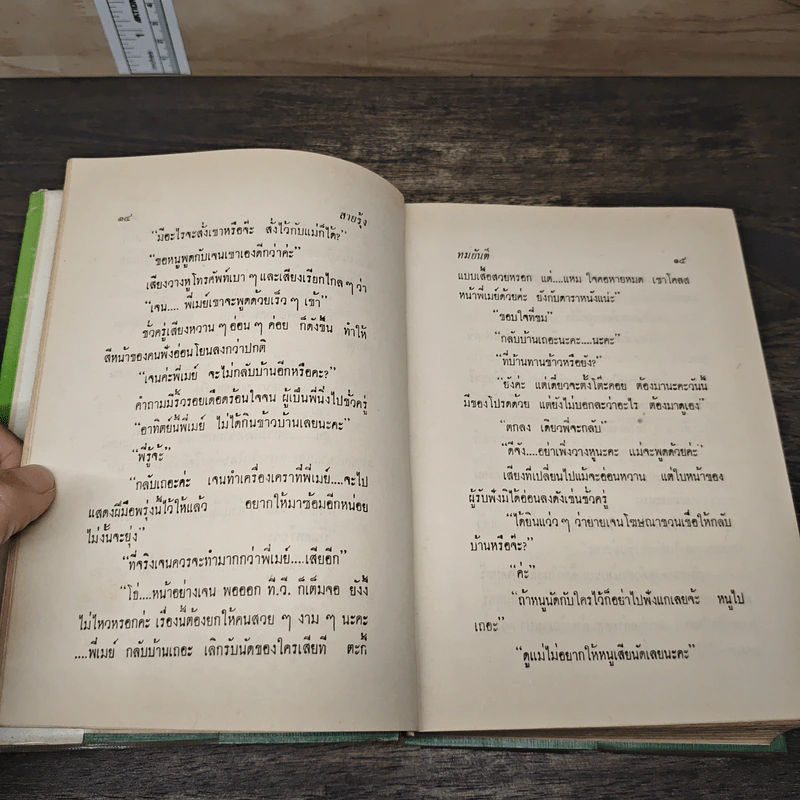 ๑๔ สายรุ้ง
“มีอะไรจะสั่งเขาหรือจ๊ะ สั่งไว้กับแม่ก็ได้?”
“ขอหนูพูดกับเจนเขาเองดีกว่าค่ะ”
เสียงวางหูโทรศัพท์เบา ๆ และเสียงเรียกไกล ๆ ว่า
“เจน.... พี่เมย์เขาจะพูดด้วยเร็ว ๆ เข้า”
ชั่วครู่เสียงหวาน ๆ อ่อน ๆ ค่อย ก็ดังขึ้น ทำให้
สีหน้าของคนฟังอ่อนโยนลงกว่าปกติ
“เจนค่ะพี่เมย์ จะไม่กลับบ้านอีกหรือคะ?”
คำถามมีริ้วรอยเดือดร้อนใจจน ผู้เป็นพี่นิ่งไปชั่วครู่
“อาทิตย์นี้พี่เมย์ ไม่ได้กินข้าวบ้านเลยนะคะ”
“พี่รู้จ้ะ”
“กลับเถอะค่ะ เจนทำเครื่องเคราที่พี่เมย์....จะไป
แสดงฝีมือพรุ่งนี้ไว้ให้แล้ว อยากให้มาซ้อมอีกหน่อย
ไม่งั้นจะยุ่ง”
“ที่จริงเจนควรจะทำมากกว่าพี่เมย์....เสียอีก”
“โธ่....หน้าอย่างเจน พอออก ที.วี. ก็เต็มจอ ยังงี้
ไม่ไหวหรอกค่ะ เรื่องนี้ต้องยกให้คนสวย ๆ งาม ๆ นะคะ
....พี่เมย์ กลับบ้านเถอะ เลิกรับนัดของใครเสียที ตะกี้
ทมยันตี ๑๕
แบบเสื้อสวยหรอก แต่....แหม ใจคอหายหมด เขาโคลส
หน้าพี่เมย์ด้วยค่ะ ยังกับดาราหนังแน่ะ”
“ขอบใจที่ชม”
“กลับบ้านเถอะนะคะ....นะคะ”
“ที่บ้านทานข้าวหรือยัง?”
“ยังค่ะ แต่เดี๋ยวจะตั้งโต๊ะคอย ต้องมานะคะวันนี้
มีของโปรดด้วย แต่ยังไม่บอกละว่าอะไร ต้องมาดูเอง”
“ตกลง เดี๋ยวพี่จะกลับ”
“ดีจัง....อย่าเพิ่งวางหูนะคะ แม่จะพูดด้วยค่ะ”
เสียงที่เปลี่ยนไปแม้จะอ่อนหวาน แต่ใบหน้าของ
ผู้รับฟังมิได้อ่อนลงดังเช่นชั่วครู่
“ได้ยินแว่ว ๆ ว่ายายเจนโฆษณาชวนเชื่อให้กลับ
บ้านหรือจ๊ะ?”
“ค่ะ”
“ถ้าหนูนัดกับใครไว้ก็อย่าไปฟังแกเลยจ้ะ หนูไป
เถอะ”
“ดูแม่ไม่อยากให้หนูเสียนัดเลยนะคะ”